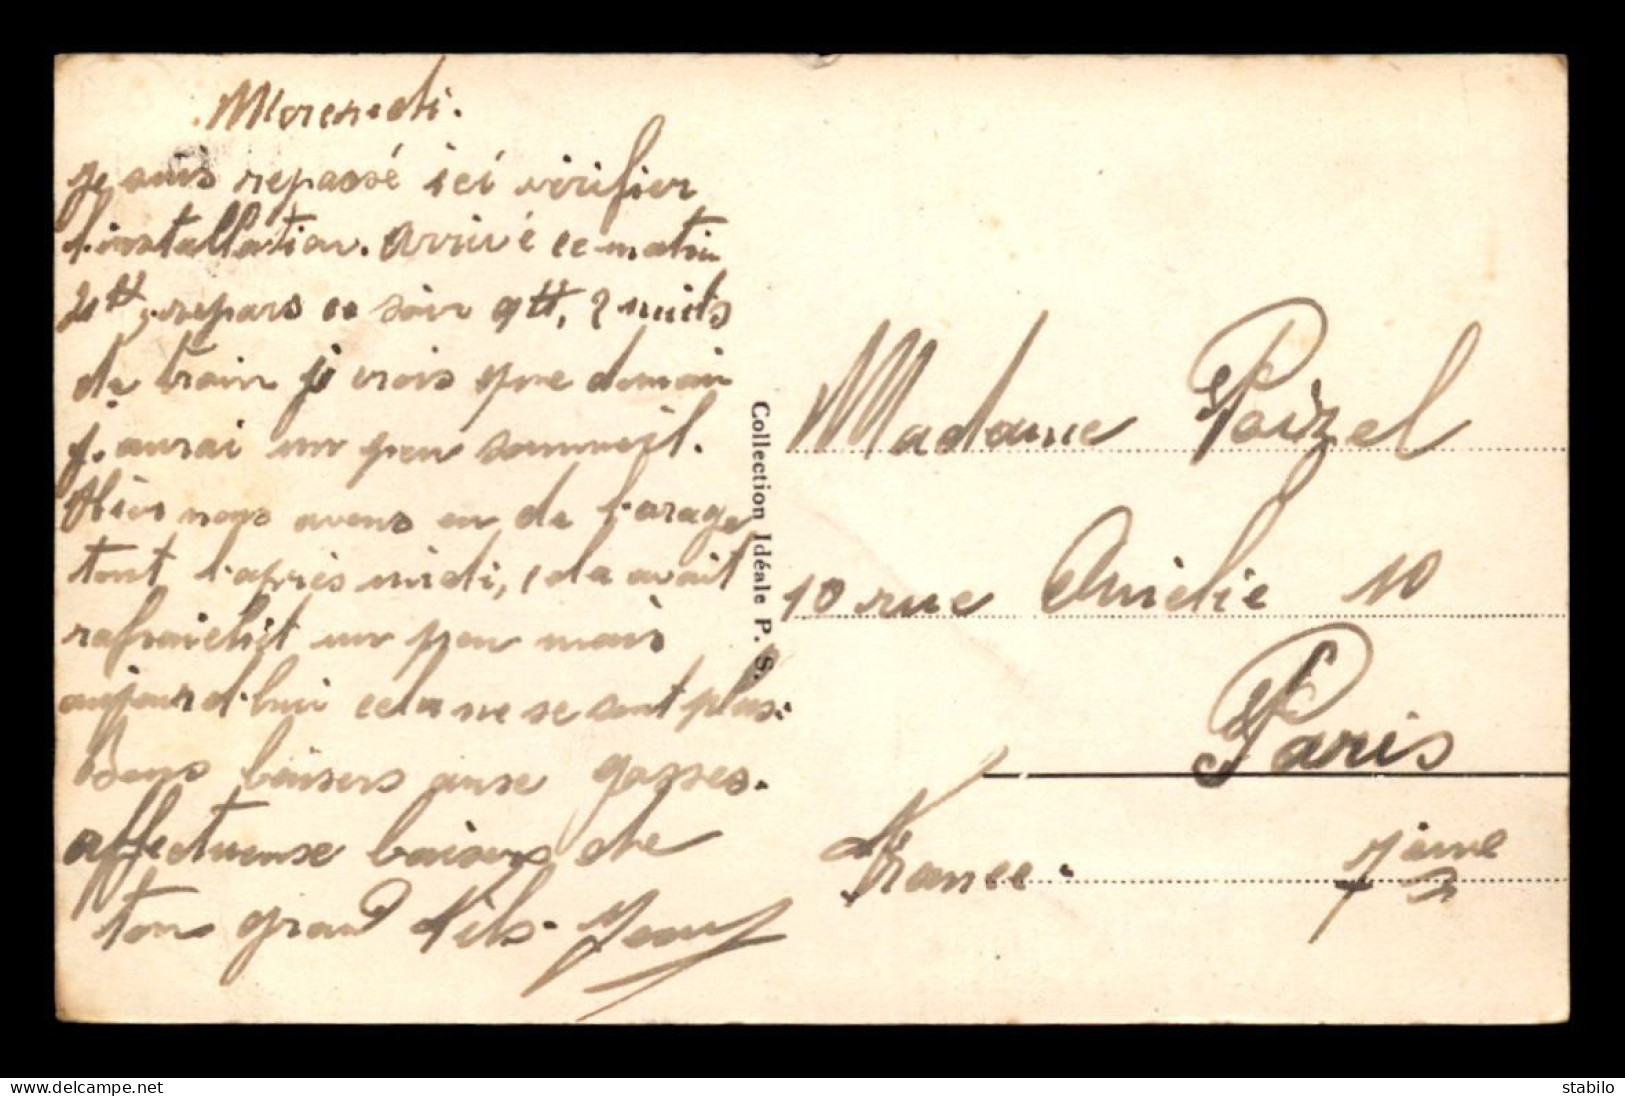 Mercredi.
je suis repassé ici vérifier
l'installation. Arrivé ce matin
repars ce soir 9H, 2 nuits
de train je crois que demain
j'aurai un peu sommeil.
Hier nous avons eu de l'orage
tout l'après midi, cela avait
rafraichit un peu mais
aujourd'hui cela ne se sent plus.
Bons baisers aux gosses.
affectueuse baisers de
ton grand fils. Jean
Collection Idéale P. S.
Madame Poizel
10 rue Amélie 10
Paris
France. 7ième
www.delcampe.net
stabilo